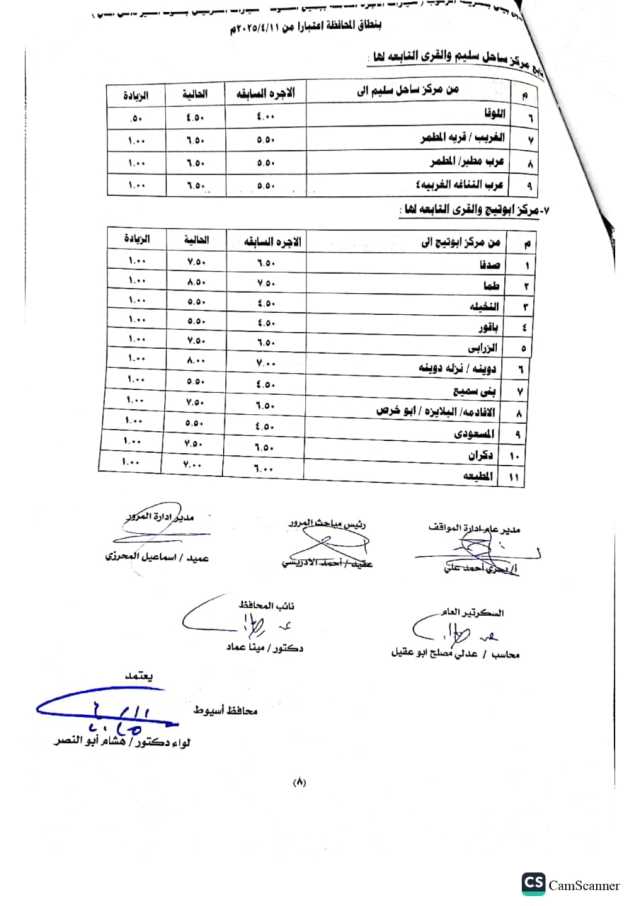 بنطاق المحافظة اعتبارا من ٢٠٢٥/٤/١١م
تابع مركز ساحل سليم والقرى التابعه لها :
م من مركز ساحل سليم الى الاجره السابقه الحالية الزيادة
٦ اللوقا ٤.٠٠ ٤.٥٠ .٥٠
٧ الغريب / قريه المطمر ٥.٥٠ ٦.٥٠ ١.٠٠
٨ عرب مطير/ المطمر ٥.٥٠ ٦.٥٠ ١.٠٠
٩ عرب الغربيه٤ ٥.٥٠ ٦.٥٠ ١.٠٠
٧-مركز ابوتيج والقرى التابعه لها :
م من مركز ابوتيج الى الاجره السابقه الحالية الزيادة
١ صدفا ٦.٥٠ ٧.٥٠ ١.٠٠
٢ طما ٧.٥٠ ٨.٥٠ ١.٠٠
٣ النخيله ٤.٥٠ ٥.٥٠ ١.٠٠
٤ باقور ٤.٥٠ ٥.٥٠ ١.٠٠
٥ الزرابى ٦.٥٠ ٧.٥٠ ١.٠٠
٦ دوينه / نزله دوينه ٧.٠٠ ٨.٠٠ ١.٠٠
٧ بنى سميع ٤.٥٠ ٥.٥٠ ١.٠٠
٨ الاقادمه/ البلايزه / ابو خرص ٦.٥٠ ٧.٥٠ ١.٠٠
٩ المسعودى ٤.٥٠ ٥.٥٠ ١.٠٠
١٠ دكران ٦.٥٠ ٧.٥٠ ١.٠٠
١١ المطيعه ٦.٠٠ ٧.٠٠ ١.٠٠
مدير عام ادارة المواقف رئيس مباحث المرور مدير ادارة المرور
أ/ بحرى أحمد على عقيد / أحمد الادريسي عميد / اسماعيل المحرزي
السكرتير العام نائب المحافظ
محاسب / عدلي مصلح ابو عقيل دكتور / مينا عماد
يعتمد
محافظ أسيوط
لواء دكتور / هشام أبو النصر
(٨)
CS CamScanner